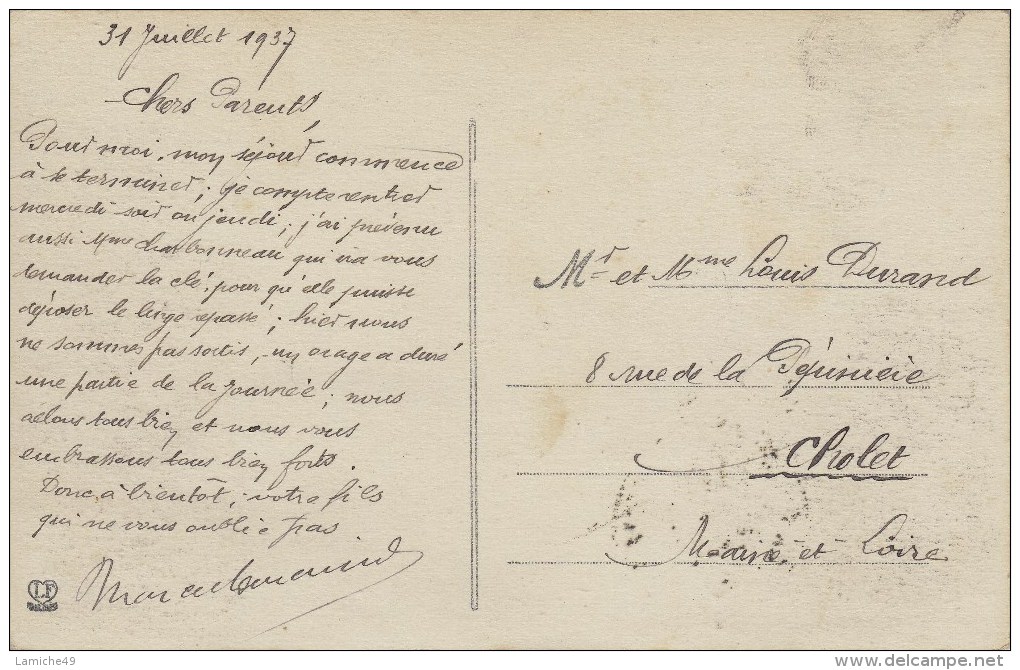 31 Juillet 1937
Chers Parents,
Pour moi, mon séjour commence
à se terminer; je compte rentrer
mercredi soir ou jeudi; j'ai prévenu
aussi Mme Charbonneau qui ira vous
demander la clé, pour qu'elle puisse
déposer le linge repassé; hier nous
ne sommes pas sortis, un orage a duré
une partie de la journée; nous
allons tous bien et nous vous
embrassons tous bien forts.
Donc, à bientôt; votre fils
qui ne vous oublie pas
Marcel Durand
LF
Mr et Mme Louis Durand
8 rue de la Pépinière
Cholet
Maine et Loire
Lamiche49
www.delcampe.net